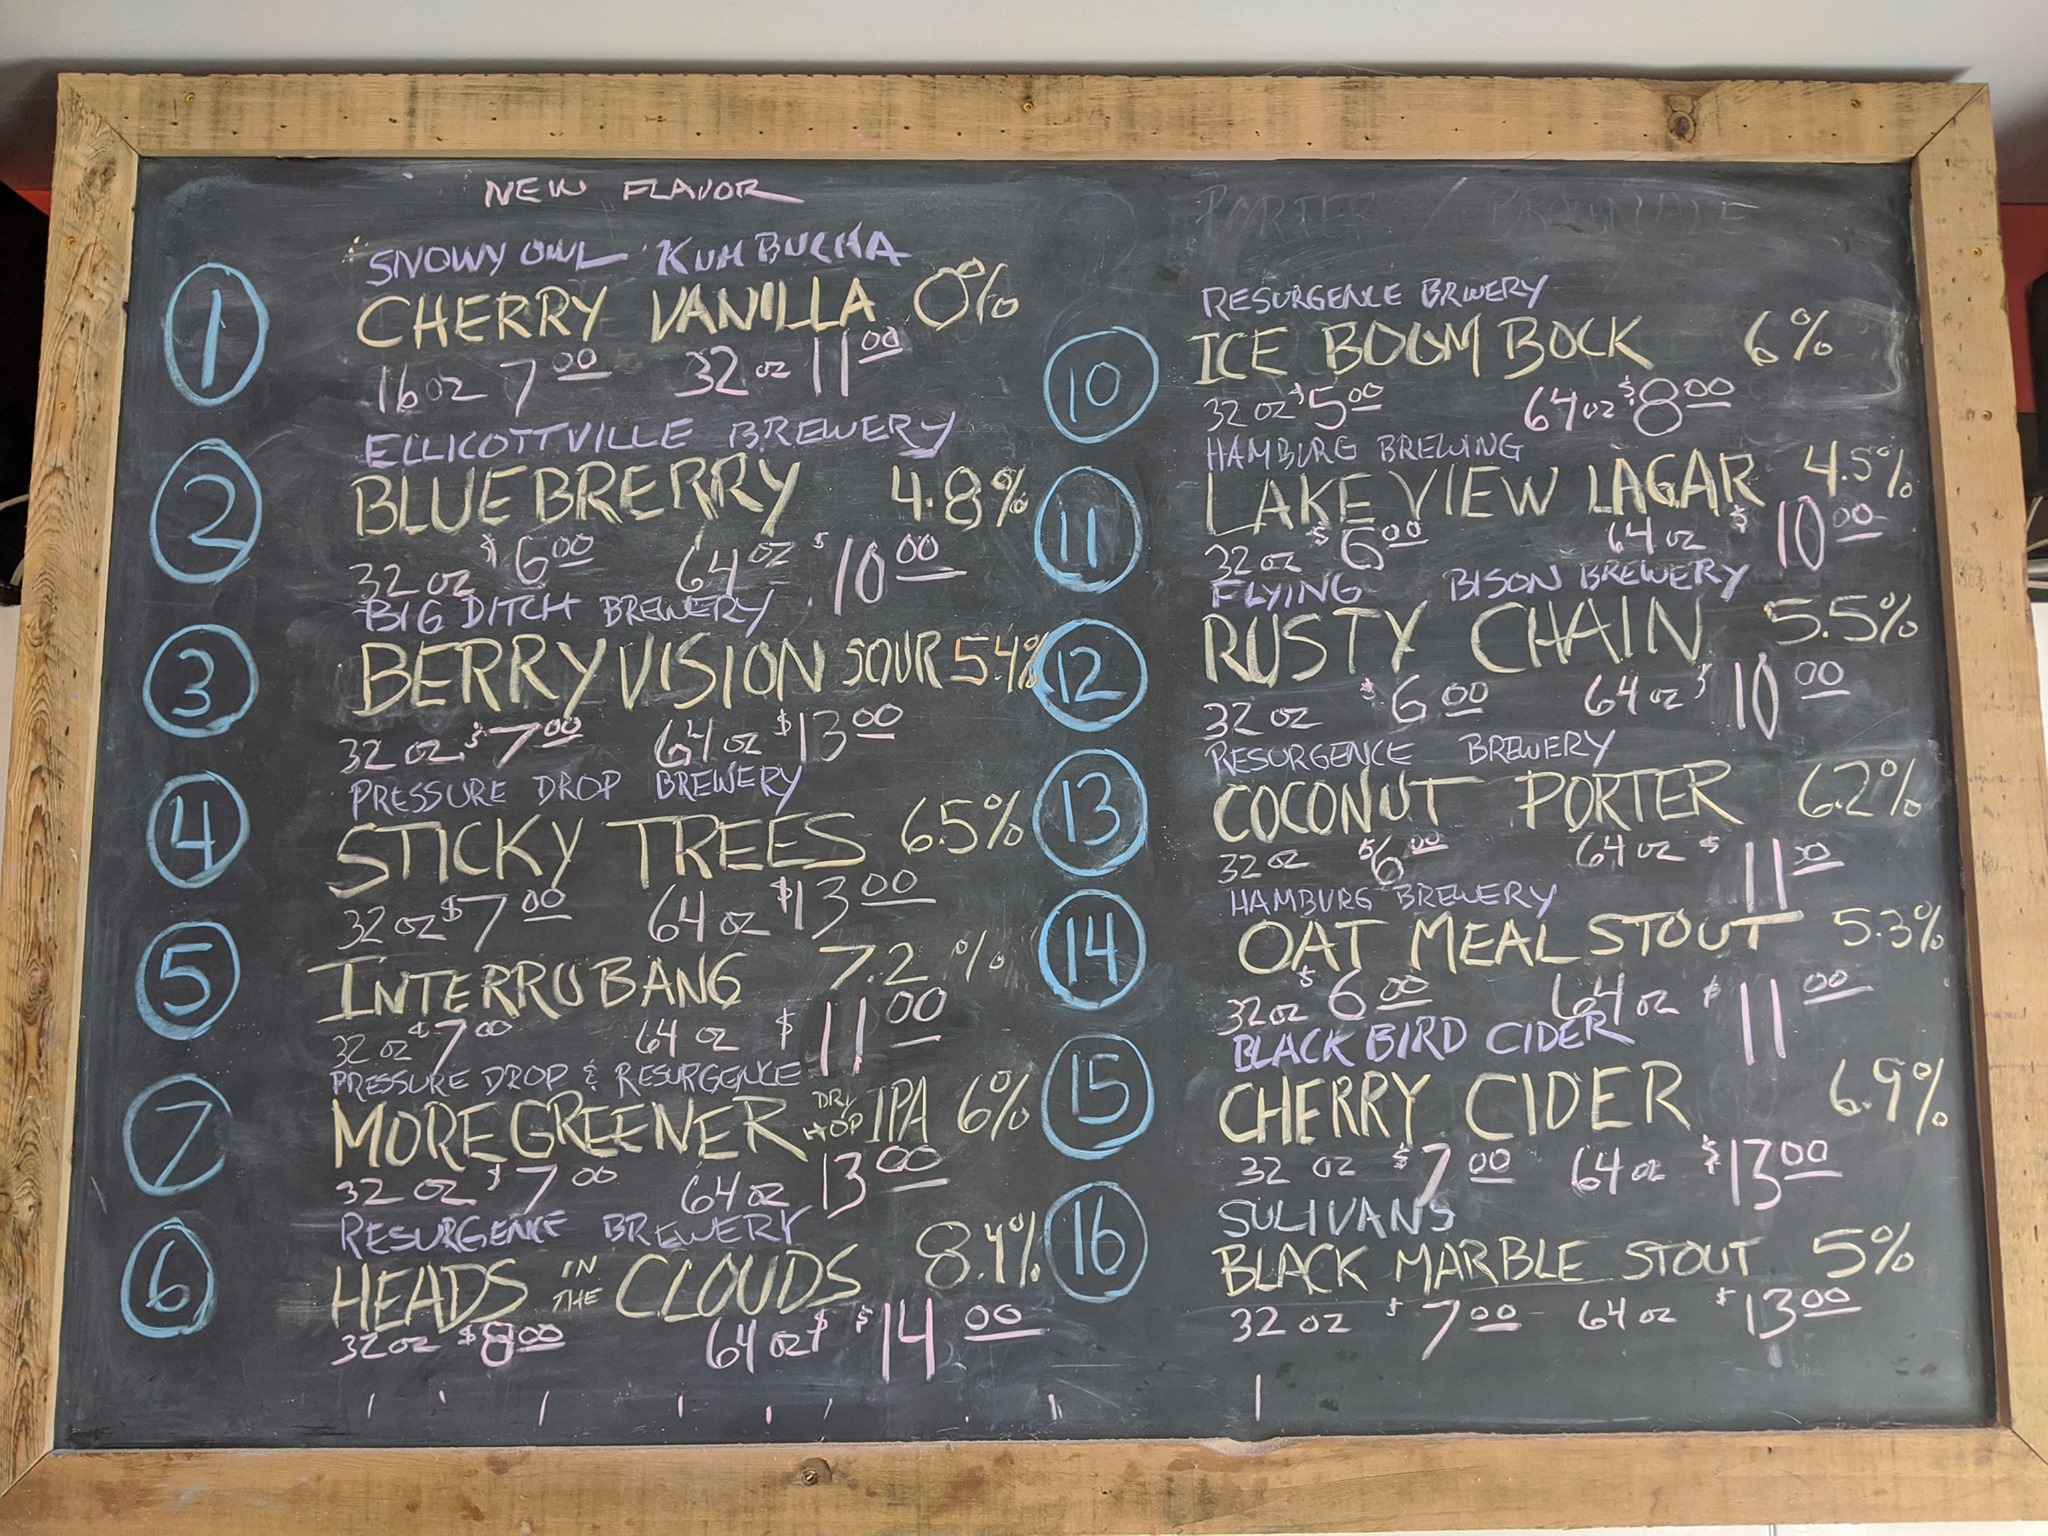 NEW FLAVOR
1
SNOWY OWL KUMBUCHA
CHERRY VANILLA 0%
16 oz 7 00 32 oz 11 00
2
ELLICOTTVILLE BREWERY
BLUEBRERRY 4.8%
32 oz $6 00 64 oz $10 00
3
BIG DITCH BREWERY
BERRY VISION SOUR 5.4%
32 oz $7 00 64 oz $13 00
4
PRESSURE DROP BREWERY
STICKY TREES 6.5%
32 oz $7 00 64 oz $13 00
5
INTERROBANG 7.2%
32 oz $7 00 64 oz $11 00
7
PRESSURE DROP & RESURGENCE
MORE GREENER DRY HOP IPA 6%
32 oz $7 00 64 oz 13 00
6
RESURGENCE BREWERY
HEADS IN THE CLOUDS 8.4%
32 oz $8 00 64 oz $ $14 00
PORTER / BROWN ALE
10
RESURGENCE BRWERY
ICE BOOM BOCK 6%
32 oz $5 00 64 oz $8 00
11
HAMBURG BREWING
LAKE VIEW LAGAR 4.5%
32 oz $6 00 64 oz $10 00
12
FLYING BISON BREWERY
RUSTY CHAIN 5.5%
32 oz $6 00 64 oz $10 00
13
RESURGENCE BREWERY
COCONUT PORTER 6.2%
32 oz $6 00 64 oz $11 00
14
HAMBURG BREWERY
OAT MEAL STOUT 5.3%
32 oz $6 00 64 oz $11 00
15
BLACK BIRD CIDER
CHERRY CIDER 6.9%
32 oz $7 00 64 oz $13 00
16
SULIVANS
BLACK MARBLE STOUT 5%
32 oz $7 00 64 oz $13 00